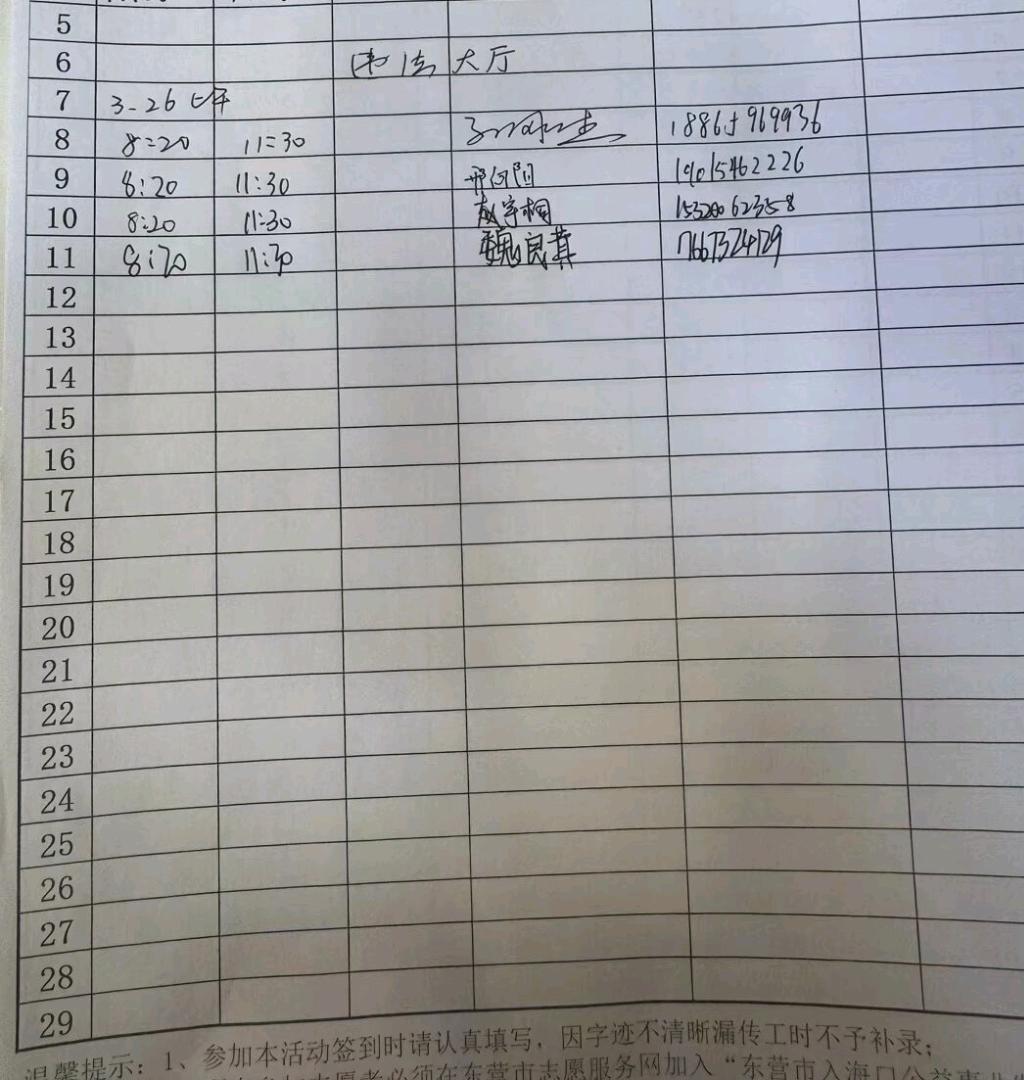 5
6 大厅
7 3-26 上午
8 8:20 11:30
9 8:20 11:30 19015462226
10 8:20 11:30 赵宇桐
11 8:20 11:30 魏良
12
13
14
15
16
17
18
19
20
21
22
23
24
25
26
27
28
29
温馨提示：1、参加本活动签到时请认真填写，因字迹不清晰漏传工时不予补录；
志愿者必须在东营市志愿服务网加入“东营市入海口公益事业